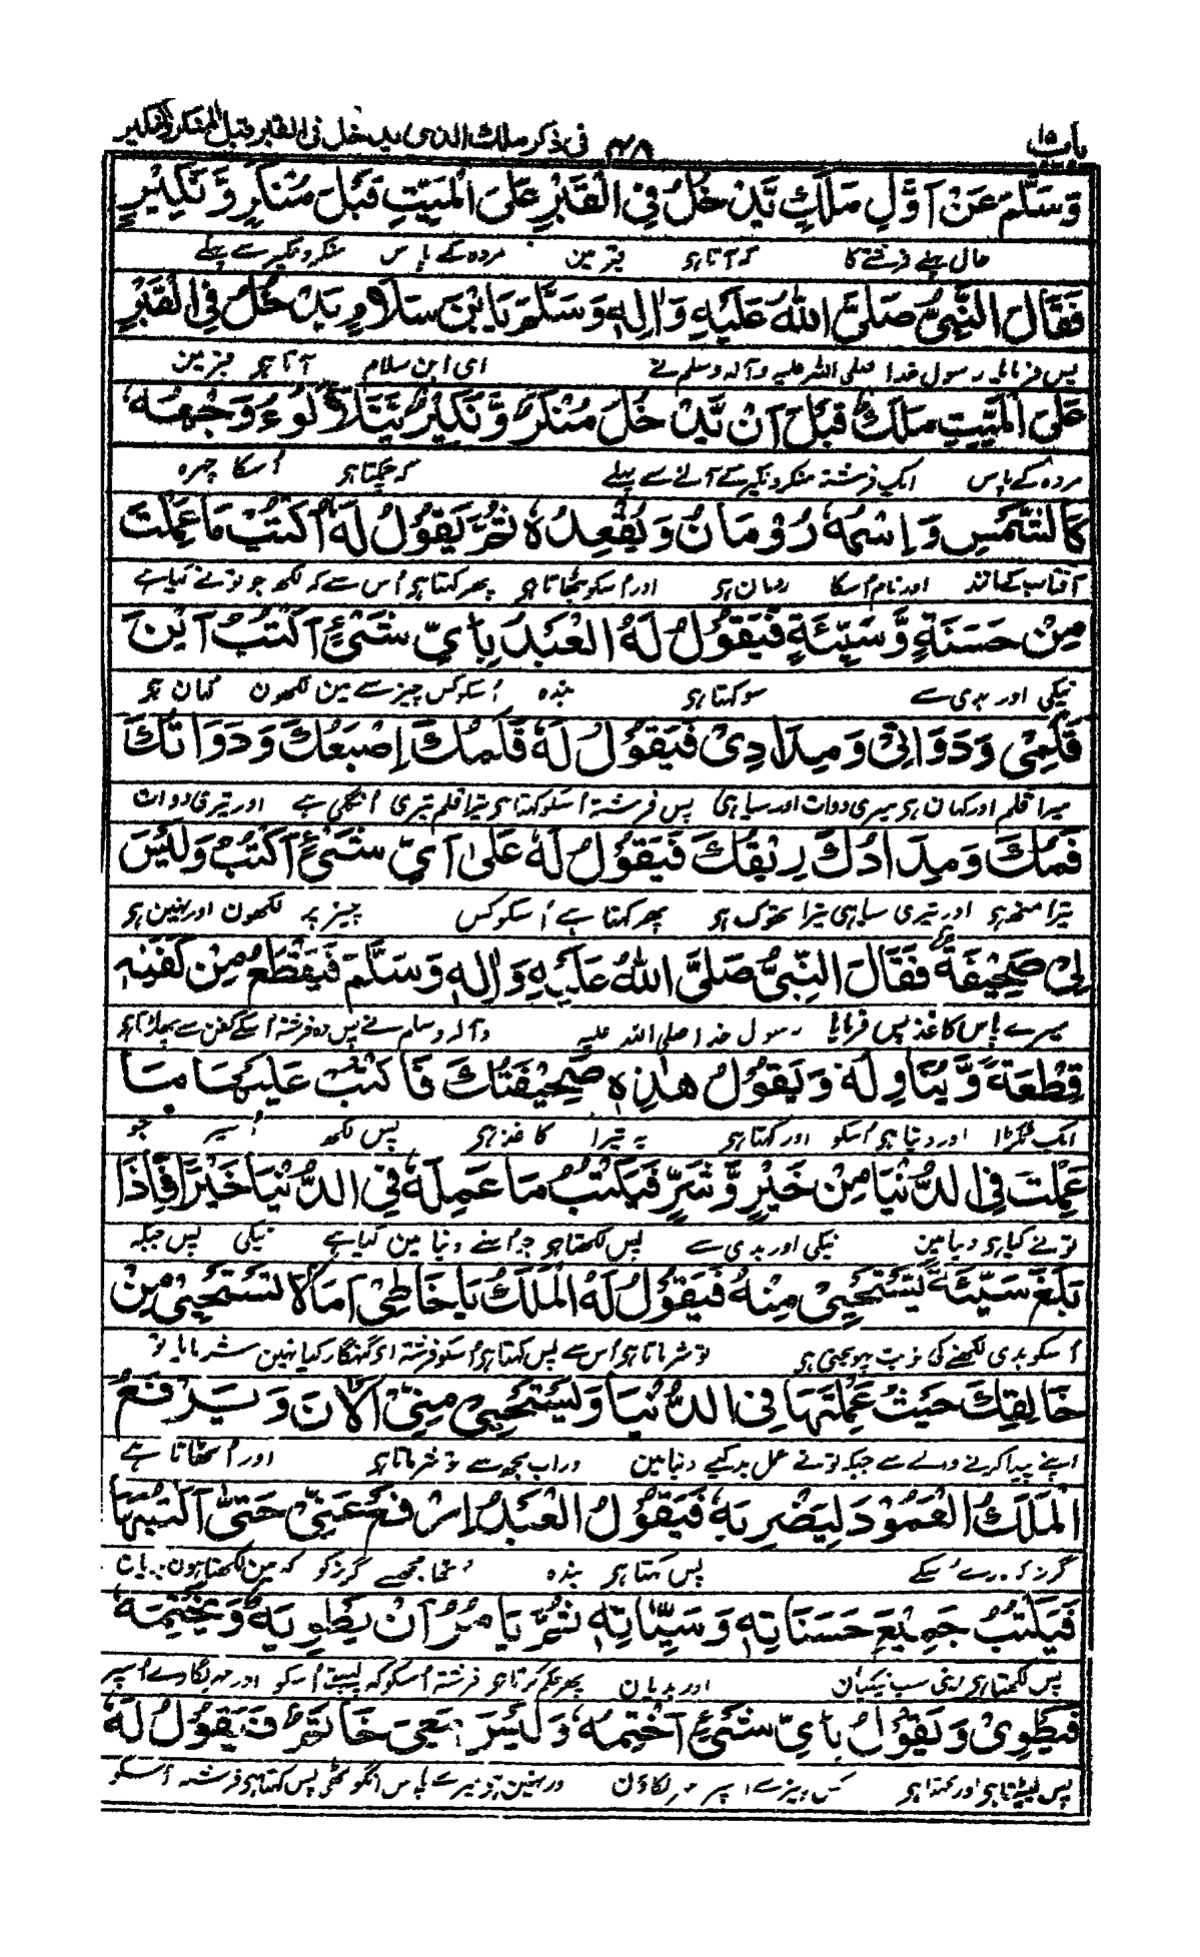 باب ۱۵ ۴۸ فی ذکر ملك الذی یدخل فی القبر قبل المنکر والنکیر
وَسَلَّمَ عَنْ اَوَّلِ مَلَكٍ يَّدْخُلُ فِي الْقَبْرِ عَلَى الْمَيِّتِ قَبْلَ مُنْكَرٍ وَّنَكِيْرٍ
حال پہلے فرشتے کا کہ آتا ہو قبر مین مردہ کے پاس منکر ونکیر سے پہلے
فَقَالَ النَّبِيُّ صَلَّى اللهُ عَلَيْهِ وَاٰلِهٖ وَسَلَّمَ يَا ابْنَ سَلَامٍ يَدْخُلُ فِي الْقَبْرِ
پس فرمایا رسول خدا صلی اللہ علیہ وآلہ وسلم نے ای ابن سلام آتا ہو قبر مین
عَلَى الْمَيِّتِ مَلَكٌ قَبْلَ اَنْ يَّدْخُلَ مُنْكَرٌ وَّنَكِيْرٌ يَتَلَأْلَؤُ وَجْهُهٗ
مردہ کے پاس ایک فرشتہ منکر ونکیر کے آنے سے پہلے کہ چمکتا ہو اُسکا چہرہ
كَالشَّمْسِ وَاِسْمُهٗ رُوْمَانُ وَيُقْعِدُهٗ ثُمَّ يَقُوْلُ لَهٗ اُكْتُبْ مَا عَمِلْتَ
آفتاب کے مانند اور نام اُسکا رومان ہو اور اُسکو بٹھاتا ہو پھر کہتا ہو اُس سے کہ لکھ جو تونے کیا ہے
مِنْ حَسَنَةٍ وَّسَيِّئَةٍ فَيَقُوْلُ لَهُ الْعَبْدُ بِاَيِّ شَيْءٍ اَكْتُبُ اَيْنَ
نیکی اور بدی سے سو کہتا ہو بندہ اُسکو کس چیز سے مین لکھون کہان ہو
قَلَمِيْ وَدَوَاتِيْ وَمِدَادِيْ فَيَقُوْلُ لَهٗ قَلَمُكَ اِصْبَعُكَ وَدَوَاتُكَ
میرا قلم اور کہان ہو میری دوات اور سیاہی پس فرشتہ اُسکو کہتا ہو تیرا قلم تیری اُنگلی ہے اور تیری دوات
فَمُكَ وَمِدَادُكَ رِيْقُكَ فَيَقُوْلُ لَهٗ عَلٰى اَيِّ شَيْءٍ اَكْتُبُ وَلَيْسَ
تیرا منھ ہو اور تیری سیاہی تیرا تھوک ہو پھر کہتا ہے اُسکو کس چیز پر لکھون اور نہین ہو
لِيْ صَحِيْفَةٌ فَقَالَ النَّبِيُّ صَلَّى اللهُ عَلَيْهِ وَاٰلِهٖ وَسَلَّمَ فَيَقْطَعُ مِنْ كَفَنِهٖ
میرے پاس کاغذ پس فرمایا رسول خدا صلی اللہ علیہ وآلہ وسلم نے پس وہ فرشتہ اُسکے کفن سے پھاڑتا ہو
قِطْعَةً وَّيُنَاوِلُهٗ وَيَقُوْلُ هٰذِهٖ صَحِيْفَتُكَ فَاكْتُبْ عَلَيْهَا مَا
ایک ٹکڑا اور دیتا ہو اُسکو اور کہتا ہو یہ تیرا کاغذ ہو پس لکھ اُسپر جو
عَمِلْتَ فِي الدُّنْيَا مِنْ خَيْرٍ وَّشَرٍّ فَيَكْتُبُ مَا عَمِلَهٗ فِي الدُّنْيَا خَيْرًا فَاِذَا
تونے کیا ہو دنیا مین نیکی اور بدی سے پس لکھتا ہو جو اُسنے دنیا مین کیا ہے نیکی پس جبکہ
بَلَغَ سَيِّئَةً يَسْتَحْيِيْ مِنْهُ فَيَقُوْلُ لَهُ الْمَلَكُ يَا خَاطِئُ اَمَا لَا تَسْتَحْيِيْ مِنْ
اُسکو بدی لکھنے کی نوبت پہونچتی ہو تو شرماتا ہو اُس سے پس کہتا ہو اُسکو فرشتہ او گنہگار کیا نہین شرمایا تو
خَالِقِكَ حَيْثُ عَمِلْتَهَا فِي الدُّنْيَا وَتَسْتَحْيِيْ مِنِّي الْاٰنَ وَيَرْفَعُ
اپنے پیدا کرنے والے سے جبکہ تونے عمل بد کیے دنیا مین اور اب مجھ سے تو شرماتا ہو اور اُٹھاتا ہے
الْمَلَكُ الْعَمُوْدَ لِيَضْرِبَهٗ فَيَقُوْلُ الْعَبْدُ اِرْفَعْ عَنِّيْ حَتّٰى اَكْتُبَهَا
گرز پس کہتا ہو بندہ اُٹھا مجھسے گرز کو کہ مین لکھتا ہون
فَيَكْتُبُ جَمِيْعَ حَسَنَاتِهٖ وَسَيِّئَاتِهٖ ثُمَّ يَاْمُرُ اَنْ يَطْوِيَهٗ وَيَخْتِمَهٗ
پس لکھتا ہو اپنی سب نیکیان اور بدیان پھر حکم کرتا ہو فرشتہ اُسکو کہ لپیٹ اُسکو اور مہر لگا دے اُسپر
فَيَطْوِيْ وَيَقُوْلُ بِاَيِّ شَيْءٍ اَخْتِمُهٗ وَلَيْسَ مَعِيَ خَاتَمٌ فَيَقُوْلُ لَهٗ
پس لپیٹتا ہو اور کہتا ہو کس چیز سے اسپر مہر لگاؤن اور نہین ہو میرے پاس انگوٹھی پس کہتا ہو فرشتہ اُسکو